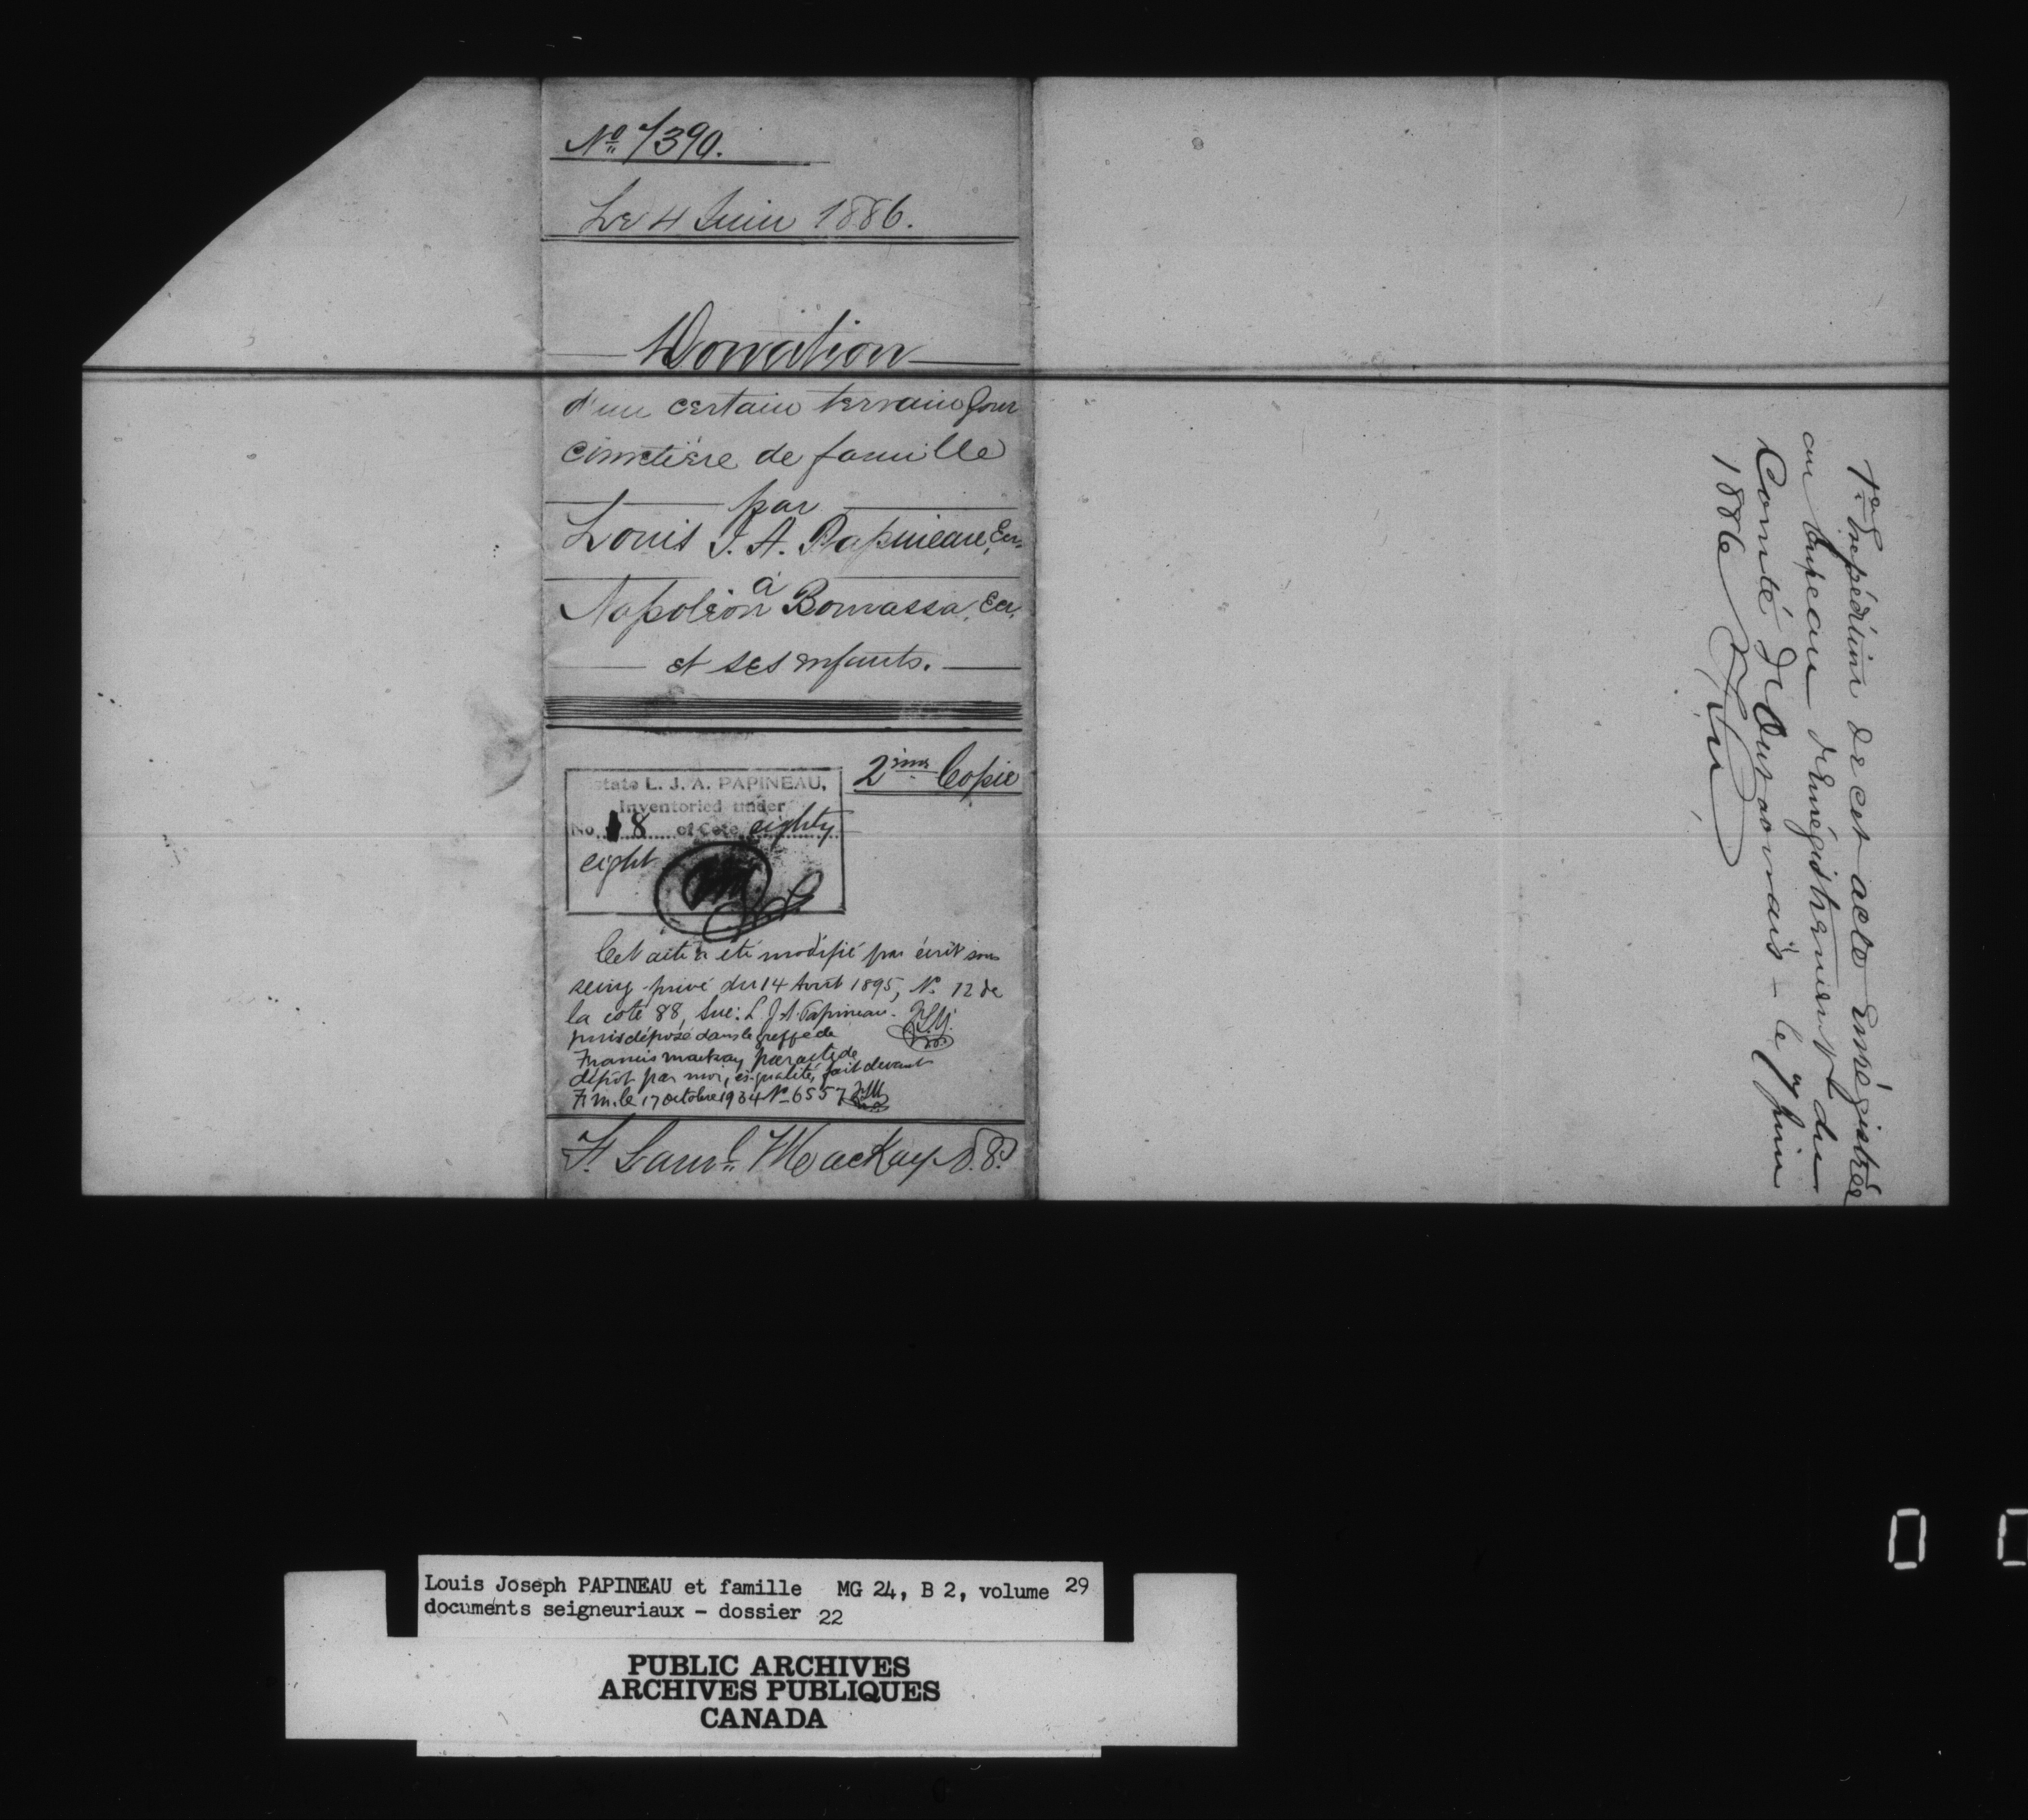 No 7390.
Le 4 Juin 1886.
Donation
d'un certain terrain pour
cimetière de famille
par
Louis J. A. Papineau, Ecr.
à
Napoléon Bourassa, Ecr,
et ses enfants.
2ième Copie
Estate L. J. A. PAPINEAU,
Inventoried under
No. 18 of Cote eighty
eight
Cet acte a été modifié par écrit sous
seing-privé du 14 Avril 1895, No. 12 de
la cote 88, Suc: L. J. A. Papineau.
puis déposé dans le greffe de
Francis Mackay par acte de
dépôt par moi, ès-qualité, fait devant
F. M. le 17 octobre 1934 No 6557
F. Saml. MacKay N.P.
1re Expédition de cet acte enrégistrée
au bureau d'Enrégistrement du
Comté d'Outaouais - le 9 Juin
1886
Louis Joseph PAPINEAU et famille MG 24, B 2, volume 29
documents seigneuriaux - dossier 22
PUBLIC ARCHIVES
ARCHIVES PUBLIQUES
CANADA
0 0